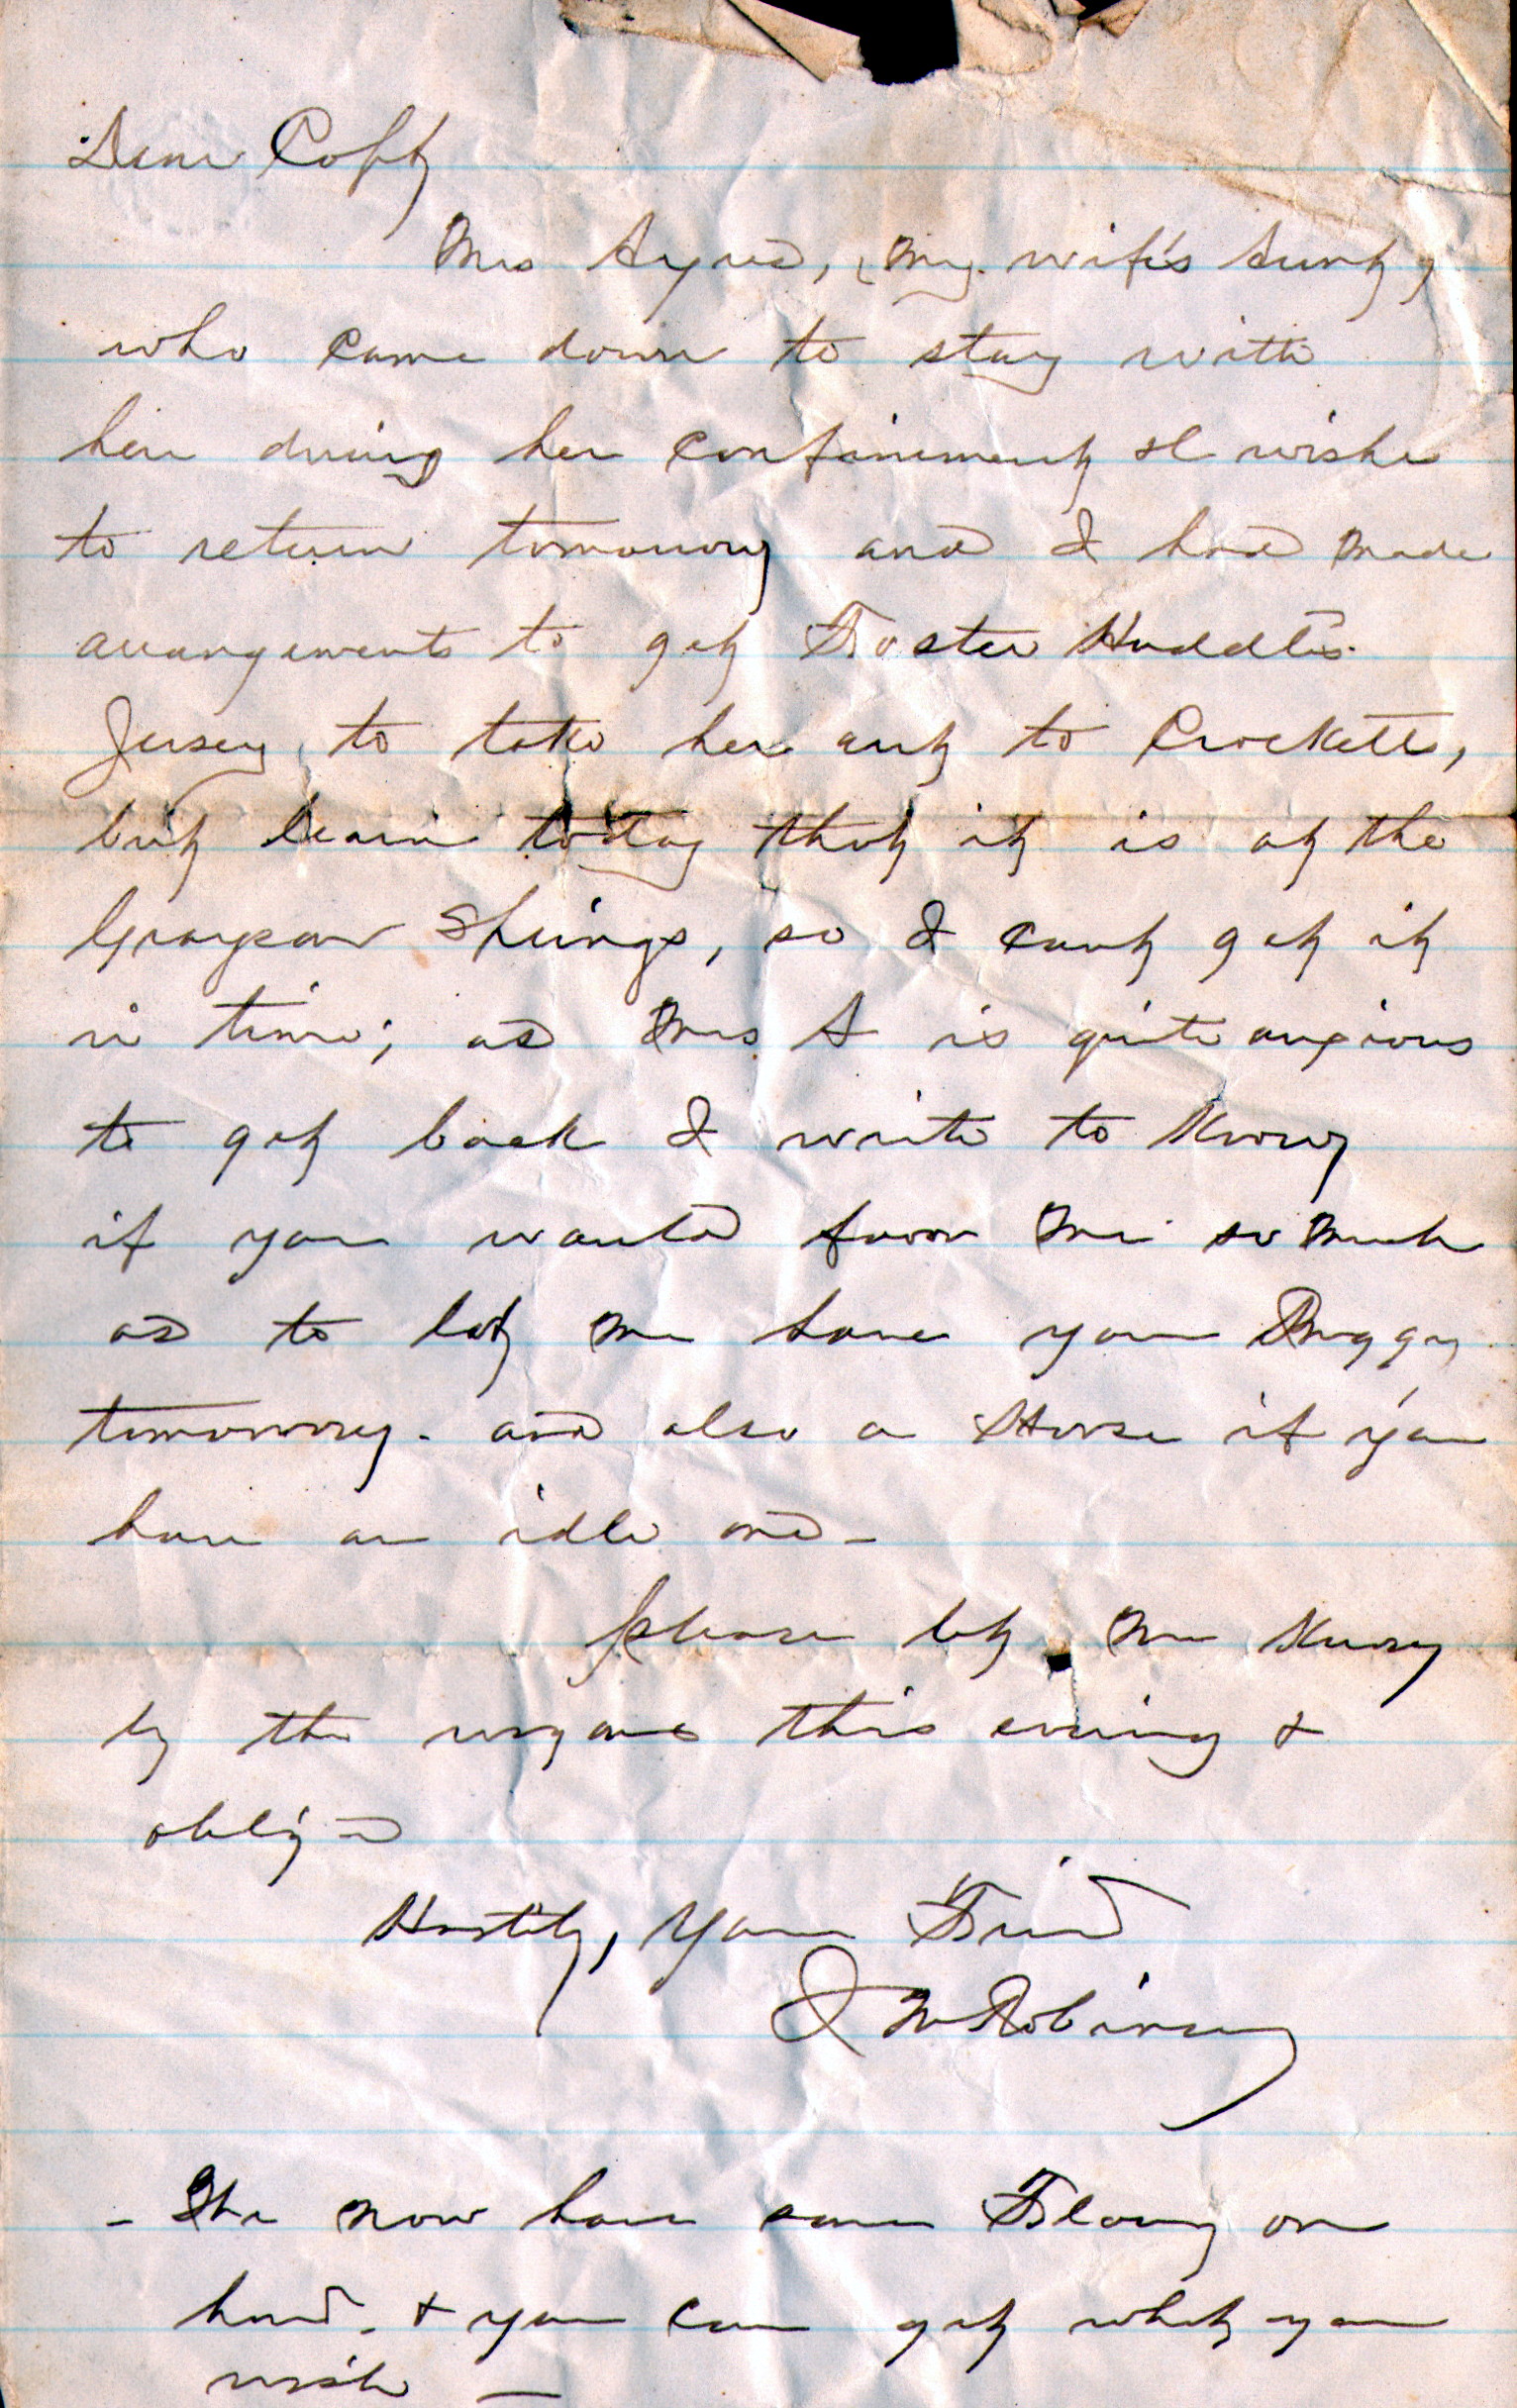 Dear Capt
Mrs Ayres, my wife's Aunt,
who came down to stay with
her during her confinement wishes
to return tomorrow and I had made
arrangements to get Foster Huddles
Jersey to take her out to Crocketts,
but learn today that it is at the
Grayson Springs, so I cant get it
in time; as Mrs A is quite anxious
to get back I write to know
if you would favor me so much
as to let me have your Buggy
tomorrow - and also a Horse if you
have an idle one -
please let me know
by the wagons this evening &
oblige
Hastily, Your Friend
J M Robinson
- We now have some Flour on
hand - & you can get what you
wish -